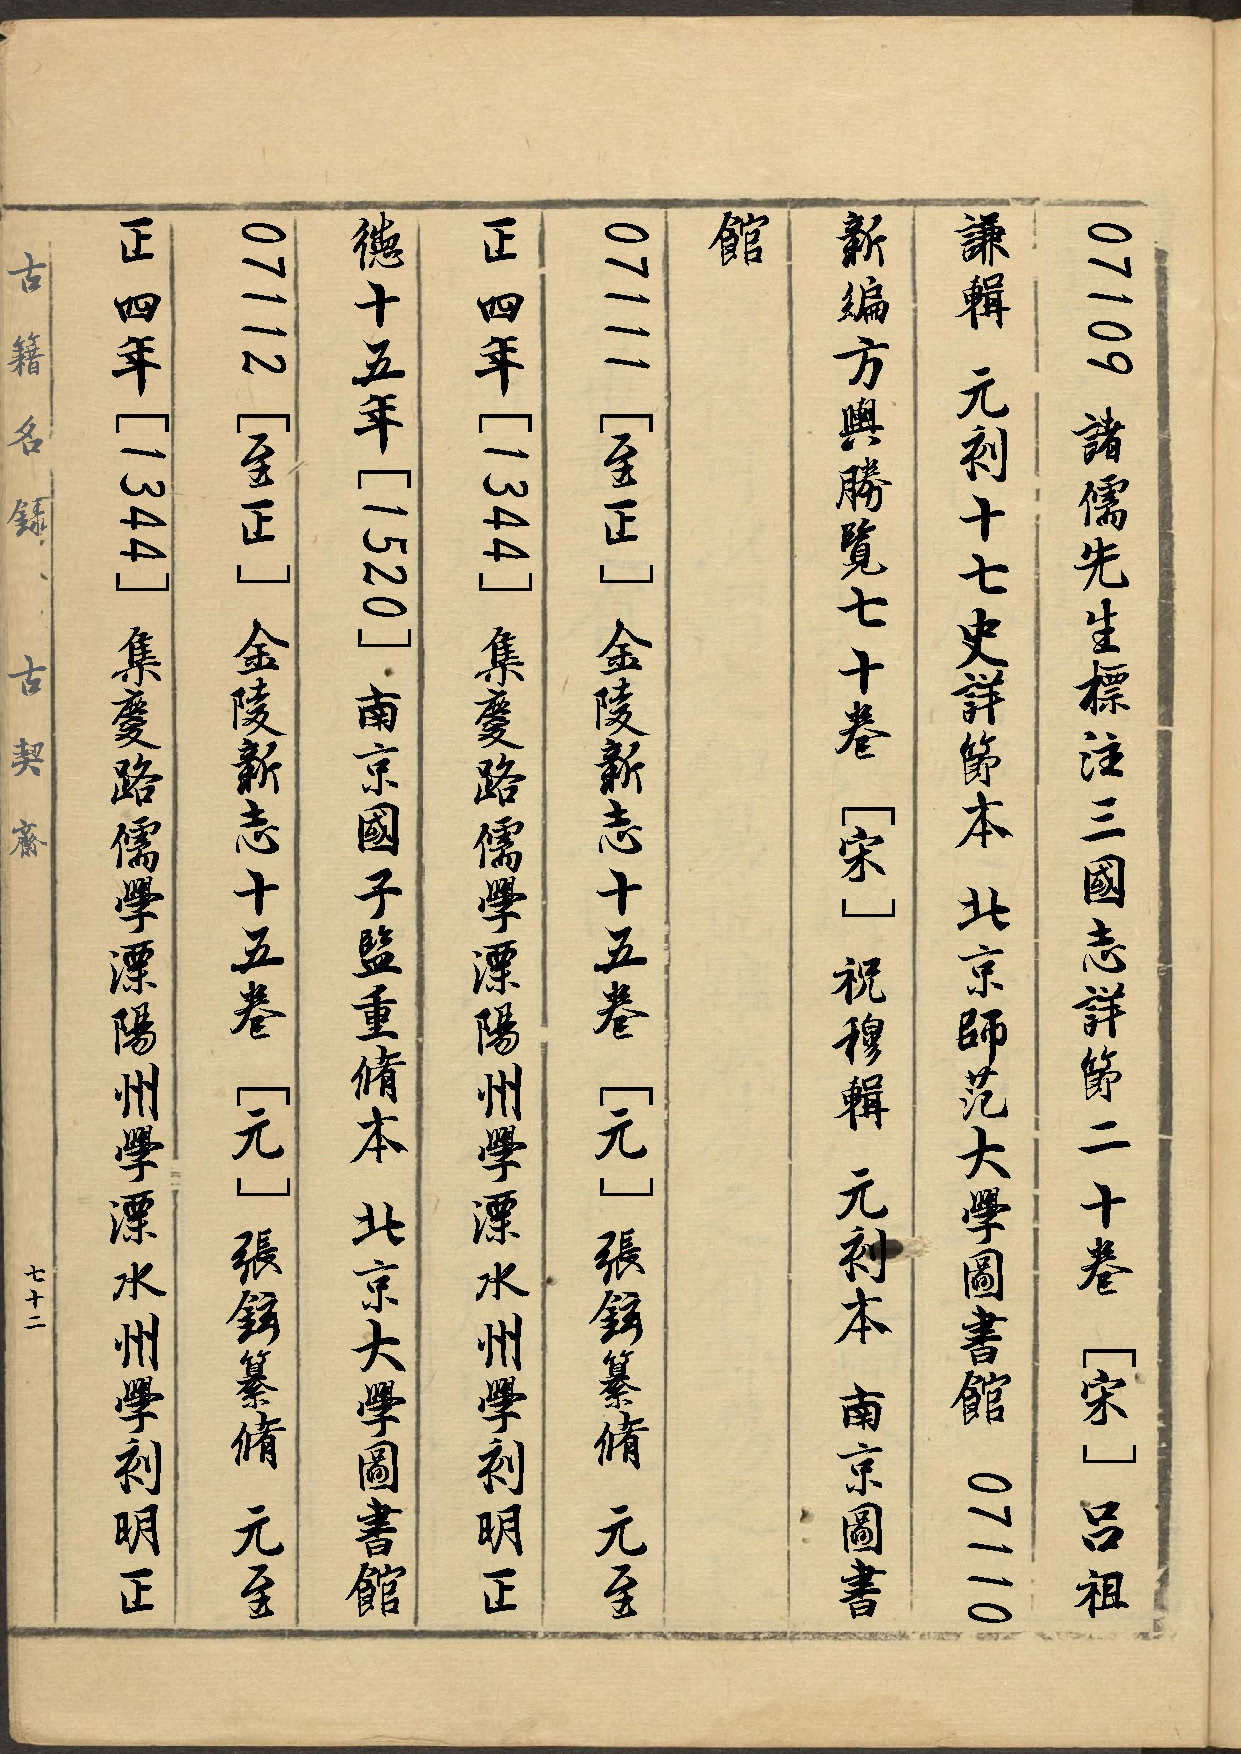 07109 諸儒先生標注三國志詳節二十卷 [宋] 呂祖
謙輯 元刻十七史詳節本 北京師范大學圖書館 07110
新編方輿勝覽七十卷 [宋] 祝穆輯 元刻本 南京圖書
館
07111 [至正] 金陵新志十五卷 [元] 張鉉纂脩 元至
正四年[1344] 集慶路儒學溧陽州學溧水州學刻明正
德十五年[1520] 南京國子監重脩本 北京大學圖書館
07112 [至正] 金陵新志十五卷 [元] 張鉉纂脩 元至
正四年[1344] 集慶路儒學溧陽州學溧水州學刻明正
古籍名錄、、古契齋
七十二